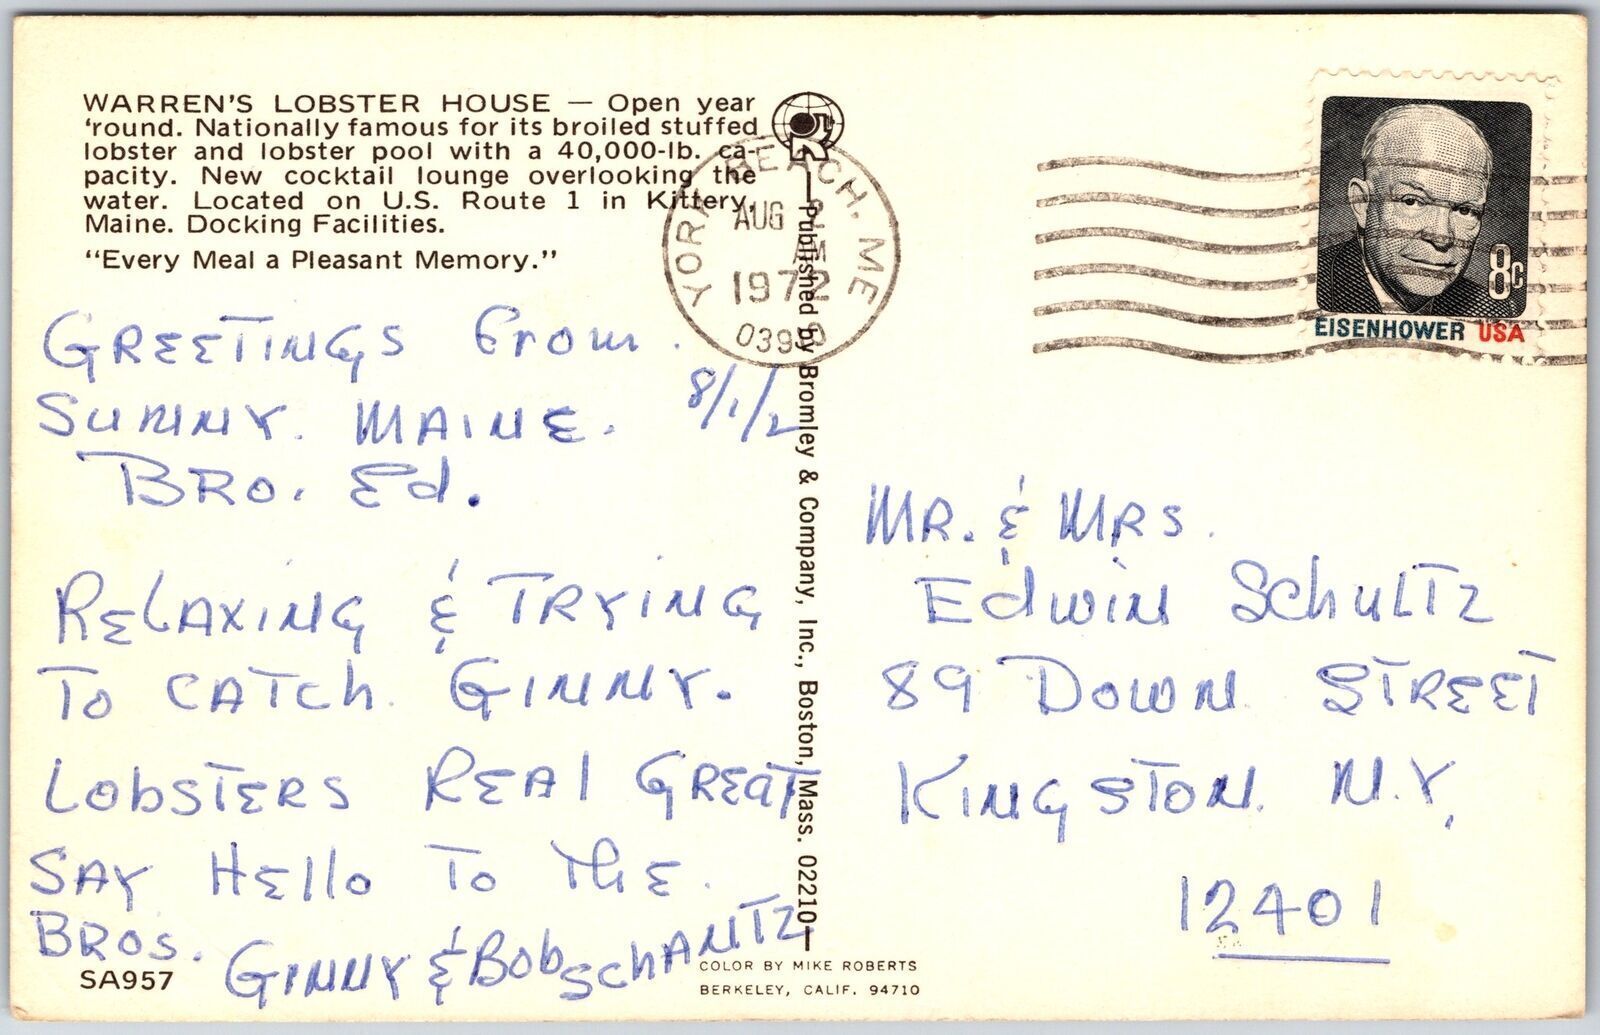 WARREN'S LOBSTER HOUSE — Open year
'round. Nationally famous for its broiled stuffed
lobster and lobster pool with a 40,000-lb. ca-
pacity. New cocktail lounge overlooking the
water. Located on U.S. Route 1 in Kittery,
Maine. Docking Facilities.
"Every Meal a Pleasant Memory."
GREETINGS From
SUNNY. MAINE.
8/1/2
BRO. Ed.
RELAXING & TRYING
TO CATCH GINNY.
LOBSTERS REAl GREAT
SAY HEllo To ThE.
BROS.
GINNY & BOB SCHANTZ
SA957
YORK BEACH, ME
AUG 2
AM
1972
Published by Bromley & Company, Inc., Boston, Mass. 02210
COLOR BY MIKE ROBERTS
BERKELEY, CALIF. 94710
8c
EISENHOWER USA
MR. & MRS.
Edwin SchulTz
89 DOWN STREET
KINGSTON. N.Y.
12401